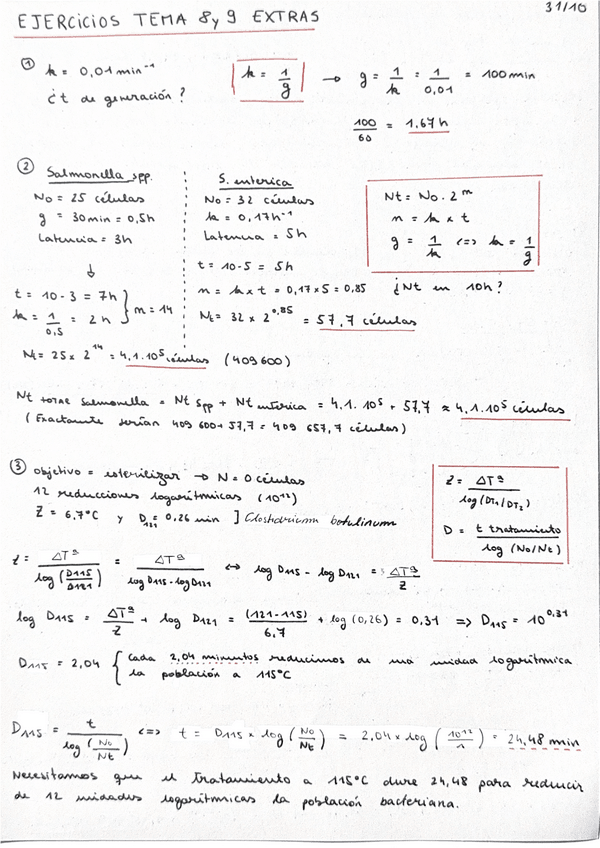 31/10
EJERCICIOS TEMA 8 y 9 EXTRAS
① k = 0,01 min⁻¹
¿t de generación?
k = 1/g → g = 1/k = 1/0,01 = 100 min
100/60 = 1.67 h
② Salmonella spp.
No = 25 células
g = 30 min = 0,5h
Latencia = 3h
↓
t = 10 - 3 = 7h
k = 1/0,5 = 2 h } m = 14
Nt = 25 x 2¹⁴ = 4,1.10⁵ células (409600)
S. enterica
No = 32 células
k = 0,17h⁻¹
Latencia = 5h
t = 10-5 = 5h
m = k x t = 0,17 x 5 = 0,85
Nt = 32 x 2^0,85 = 57,7 células
Nt = No . 2^m
m = k x t
g = 1/k <=> k = 1/g
¿Nt en 10h?
Nt totale Salmonella = Nt spp + Nt enterica = 4,1.10⁵ + 57,7 ≈ 4,1.10⁵ células
(Exactamente serían 409 600 + 57,7 = 409 657,7 células)
③ objetivo = esterilizar → N = 0 células
12 reducciones logarítmicas (10¹²)
Z = 6,7°C y D121 = 0,26 min ] Clostridium botulinum
Z = ΔTª / log (DT1/DT2)
D = t tratamiento / log (No/Nt)
Z = ΔTª / log (D115/D121) = ΔTª / log D115 - log D121 <-> log D115 - log D121 = ΔTª / Z
log D115 = ΔTª / Z + log D121 = (121-115) / 6,7 + log (0,26) = 0,31 => D115 = 10^0,31
D115 = 2,04 { cada 2,04 minutos reducimos de una unidad logarítmica
la población a 115°C
D115 = t / log (No/Nt) <=> t = D115 x log (No/Nt) = 2,04 x log (10¹²/1) = 24,48 min
Necesitamos que el tratamiento a 115°C dure 24,48 para reducir
de 12 unidades logarítmicas la población bacteriana.